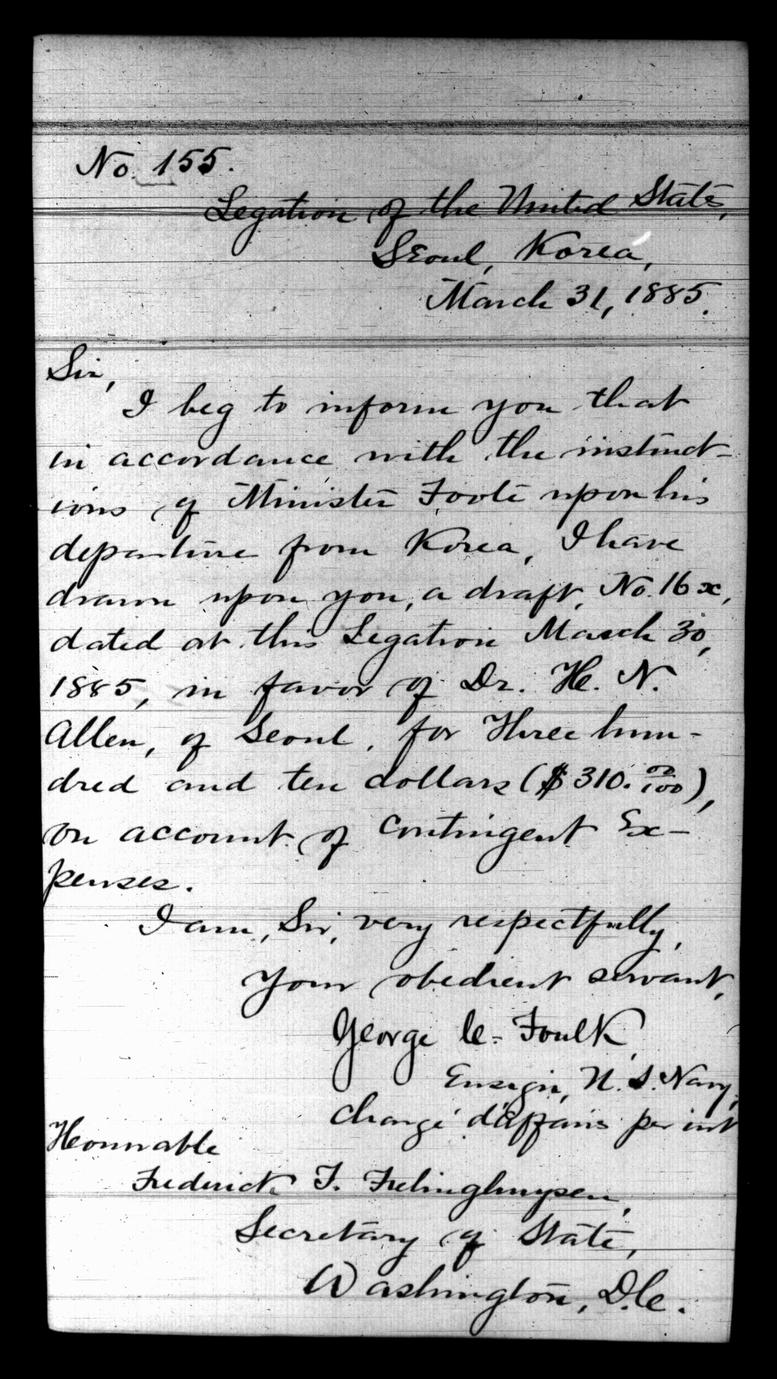 No. 155.
Legation of the United States,
Seoul, Korea,
March 31, 1885.
Sir,
I beg to inform you that
in accordance with the instruct-
ions of Minister Foote upon his
departure from Korea, I have
drawn upon you, a draft, No. 16 x,
dated at this Legation March 30,
1885, in favor of Dr. H. N.
Allen, of Seoul, for Three hun-
dred and ten dollars ($310. 00/100),
on account of Contingent Ex-
penses.
I am, Sir, very respectfully,
Your obedient servant,
George C. Foulk,
Ensign, U. S. Navy,
Chargé d'affairs per int
Honorable
Frederick T. Frelinghuysen,
Secretary of State,
Washington, D.C.